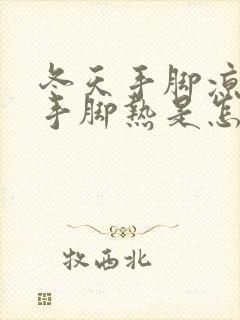 冬天手脚凉
手脚热是怎
牧西北